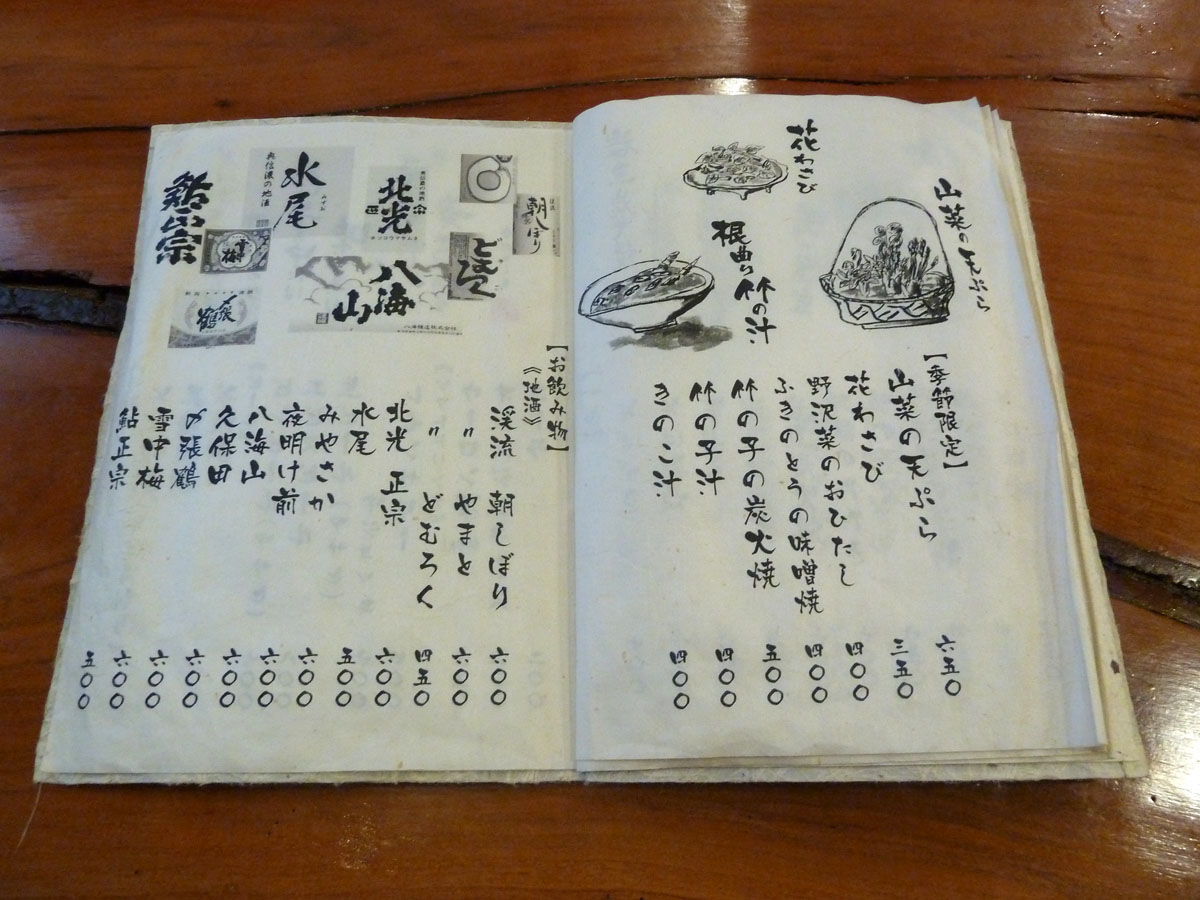 山菜の天ぷら
花わさび
根曲り竹の汁
【季節限定】
山菜の天ぷら 六五〇
花わさび 三五〇
野沢菜のおひたし 四〇〇
ふきのとうの味噌焼 四〇〇
竹の子の炭火焼 五〇〇
竹の子汁 四〇〇
きのこ汁 四〇〇
朝しぼり
どむろく
北光
正宗
ホッコウマサムネ
八海山
八海醸造株式会社
水尾
みずお
奥信濃の地酒
雪中梅
〆張鶴
鮎正宗
【お飲み物】
《地酒》
渓流 朝しぼり 六〇〇
〃 やまと 六〇〇
〃 どむろく 四五〇
北光 正宗 六〇〇
水尾 五〇〇
みやさか 六〇〇
夜明け前 六〇〇
八海山 六〇〇
久保田 六〇〇
〆張鶴 六〇〇
雪中梅 六〇〇
鮎正宗 五〇〇